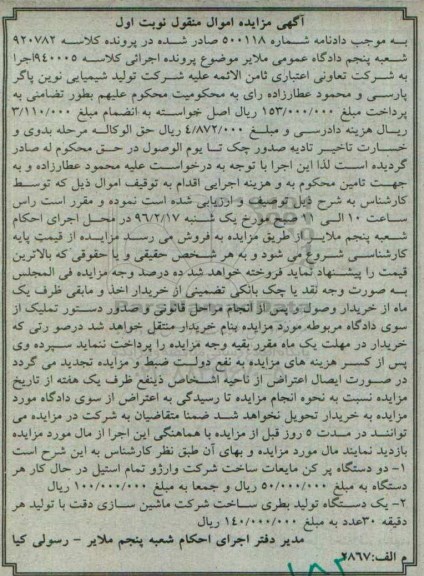 آگهی مزایده اموال منقول نوبت اول
به موجب دادنامه شماره ۵۰۰۱۱۸ صادر شده در پرونده کلاسه ۹۲۰۷۸۲
شعبه پنجم دادگاه عمومی ملایر موضوع پرونده اجرائی کلاسه ۹۴۰۰۰۵اجرا
به شرکت تعاونی اعتباری ثامن الائمه علیه شرکت تولید شیمیایی نوین پاگر
پارسی و محمود عطارزاده رای به محکومیت محکوم علیهم بطور تضامنی به
پرداخت مبلغ ۱۵۳/۰۰۰/۰۰۰ ریال اصل خواسته به انضمام مبلغ ۳/۱۱۰/۰۰۰
ریال هزینه دادرسی و مبلغ ۴/۸۷۲/۰۰۰ ریال حق الوکاله مرحله بدوی و
خسارت تاخیر تادیه صدور چک تا یوم الوصول در حق محکوم له صادر
گردیده است لذا این اجرا با توجه به درخواست علیه محمود عطارزاده و به
جهت تامین محکوم به و هزینه اجرایی اقدام به توقیف اموال ذیل که توسط
کارشناس به شرح ذیل توصیف و ارزیابی شده است نموده و مقرر است راس
ساعت ۱۰ الی ۱۱ صبح مورخ یک شنبه ۹۶/۲/۱۷ در محل اجرای احکام
شعبه پنجم ملایر از طریق مزایده به فروش می رسد مزایده از قیمت پایه
کارشناسی شروع می شود و به هر شخص حقیقی و یا حقوقی که بالاترین
قیمت را پیشنهاد نماید فروخته خواهد شد ده درصد وجه مزایده فی المجلس
به صورت وجه نقد یا چک بانکی تضمینی از خریدار اخذ و مابقی ظرف یک
ماه از خریدار وصول و پس از انجام مراحل قانونی و صدور دستور تملیک از
سوی دادگاه مربوطه مورد مزایده بنام خریدار منتقل خواهد شد درصورتی که
خریدار در مهلت یک ماه مقرر بقیه وجه مزایده را پرداخت ننماید سپرده وی
پس از کسر هزینه های مزایده به نفع دولت ضبط و مزایده تجدید می گردد
در صورت ایصال اعتراض از ناحیه اشخاص ذینفع ظرف یک هفته از تاریخ
مزایده نسبت به نحوه انجام مزایده تا رسیدگی به اعتراض از سوی دادگاه مورد
مزایده به خریدار تحویل نخواهد شد ضمنا متقاضیان به شرکت در مزایده می
توانند در مدت ۵ روز قبل از مزایده با هماهنگی این اجرا از مال مورد مزایده
بازدید نمایند مال مورد مزایده و بهای آن طبق نظر کارشناس به این شرح است
۱- دو دستگاه پر کن مایعات ساخت شرکت وارژو تمام استیل در حال کار هر
دستگاه به مبلغ ۵۰/۰۰۰/۰۰۰ ریال و جمعا به مبلغ ۱۰۰/۰۰۰/۰۰۰ ریال
۲- یک دستگاه تولید بطری ساخت شرکت ماشین سازی دقت با تولید هر
دقیقه ۳۰عدد به مبلغ ۱۴۰/۰۰۰/۰۰۰ ریال
مدیر دفتر اجرای احکام شعبه پنجم ملایر - رسولی کیا
م الف:۲۸۶۷